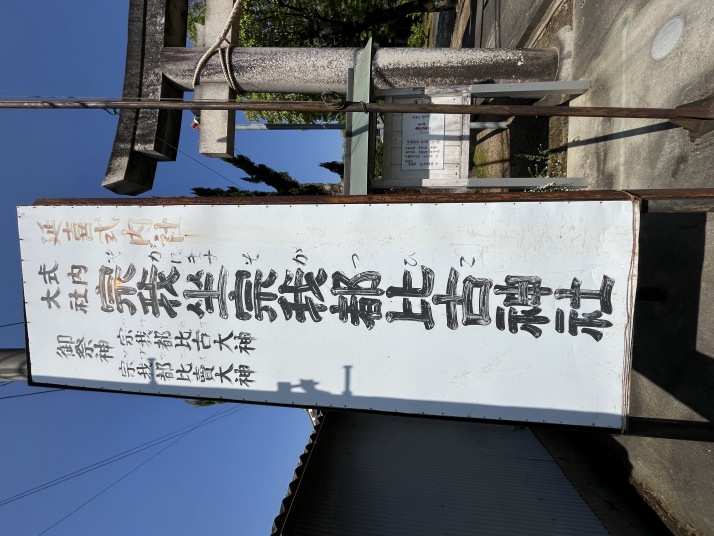 延喜式内社
式内
大社
そがにますそがつひこ
宗我坐宗我都比古神社
御祭神
宗我都比古大神
宗我都比賣大神